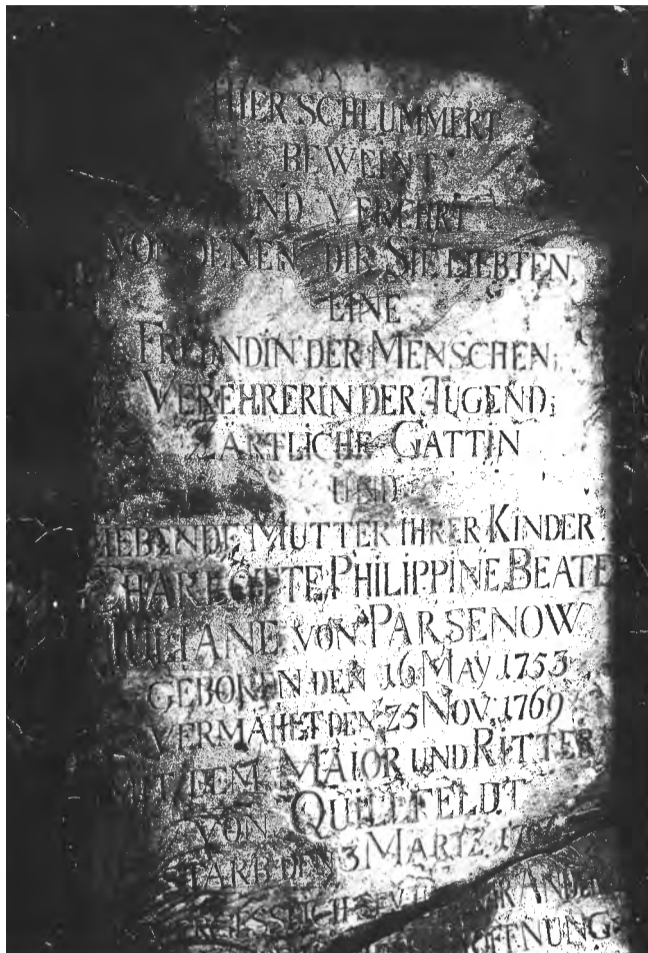 HIER SCHLUMMERT
BEWEINT
UND VEREHRT
VON JENEN DIE SIE LIEBTEN,
EINE
FREUNDIN DER MENSCHEN;
VEREHRERIN DER JUGEND;
ZÄRTLICHE GATTIN
UND
LIEBENDE MUTTER IHRER KINDER
PHILIPPINE, BEATE
JULIANE VON PARSENOW
GEBOREN DEN 16 MAY 1753
VERMÄHLT DEN 25 NOV. 1769
MIT DEM MAIOR UND RITTER
VON QUILLFELDT
STARB DEN 3 MARTZ